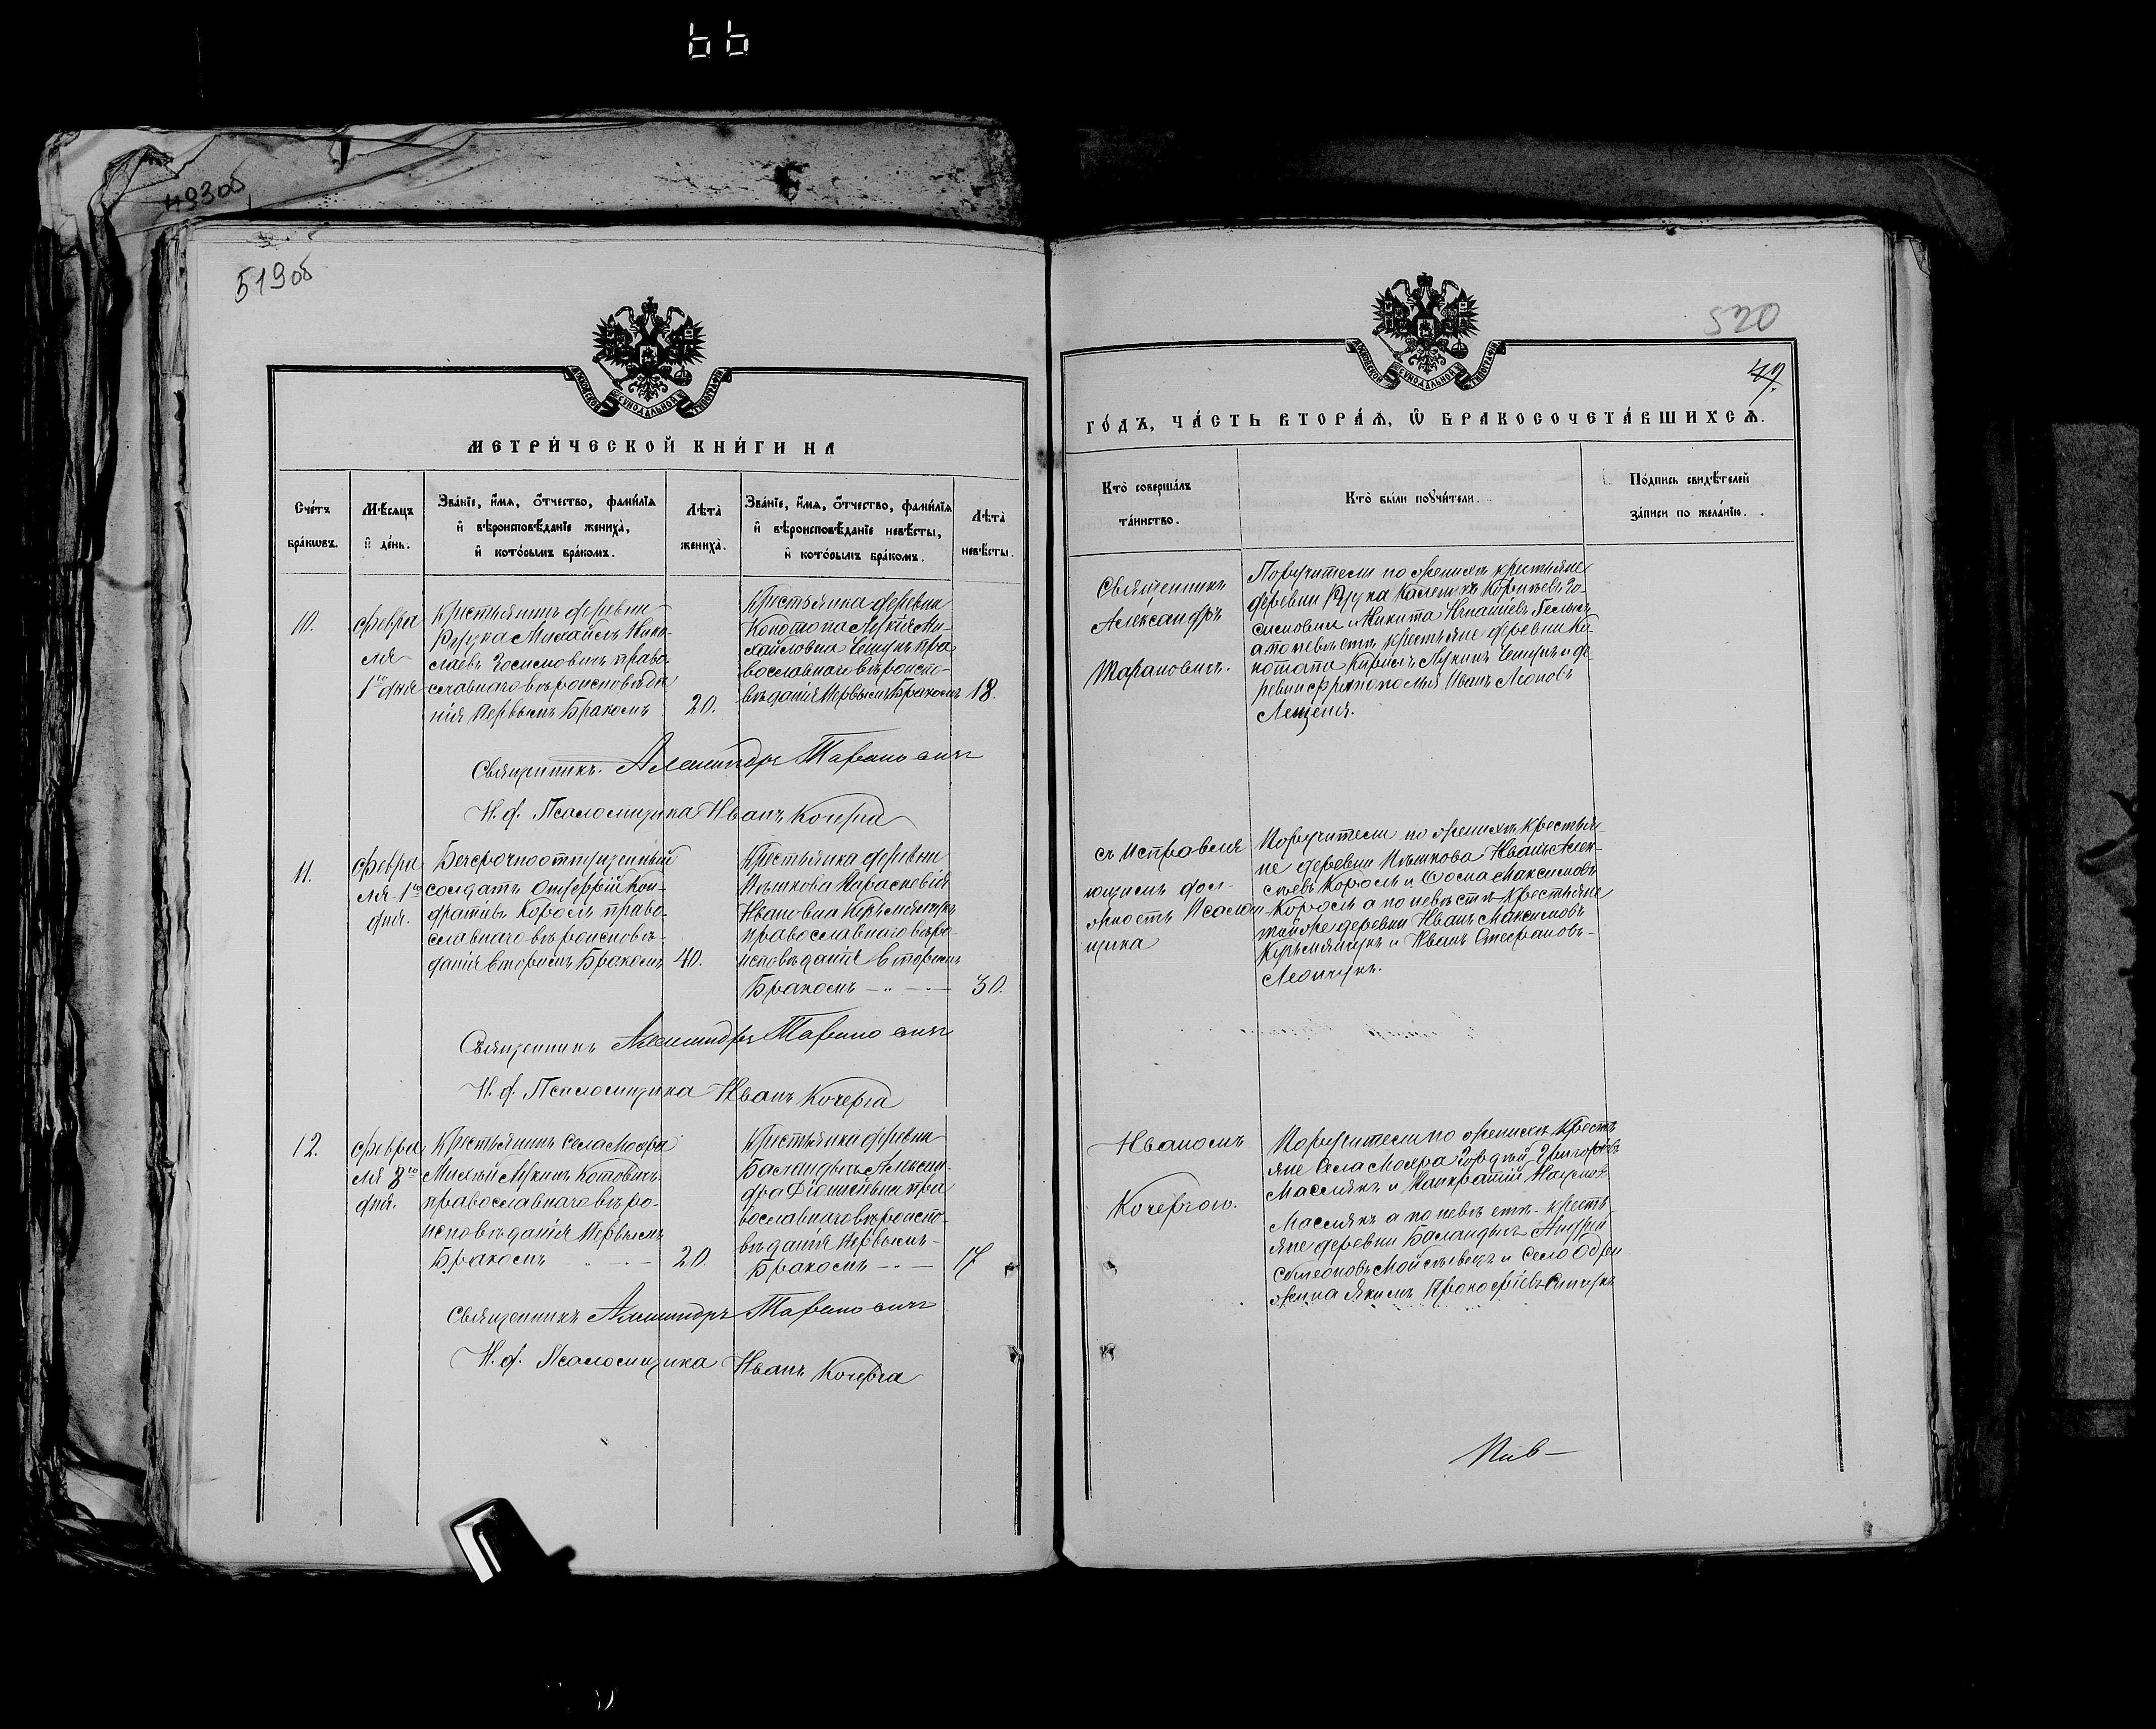 49306
519об
МЕТРИ́ЧЕСКОЙ КНИ́ГИ НА
Сче́тъ бра́кωвъ.
Мѣ́сяцъ и҆ де́нь.
Зва́нїе, и҆́мя, ѻ҆́тчество, фами́лїя и҆ вѣроисповѣ́данїе жениха̀, и҆ кото́рымъ бра́комъ.
Лѣ́та жениха̀.
Зва́нїе, и҆́мя, ѻ҆́тчество, фами́лїя и҆ вѣроисповѣ́данїе невѣ́сты, и҆ кото́рымъ бра́комъ.
Лѣ́та невѣ́сты.
10.
февра
ля
1го дня
Крестьянинъ деревни
Михаилъ Нико-
лаевъ Зосимовичъ право-
славнаго вѣроисповѣда
нія Первымъ Бракомъ
20.
Крестьянка деревни
Лукія Ми-
хайловна пра
вославнаго вѣроиспо-
вѣданія Первымъ Бракомъ
18.
Священникъ Александръ Тарановичъ
И. д. Псаломщика Иванъ Кочерга
11.
февра
ля 1го
дня.
Безсрочноотпущенный
солдатъ Онуфрій Кон-
дратьевъ Король право-
славнаго вѣроисповѣ-
данія вторымъ Бракомъ
40.
Крестьянка деревни
Пѣшкова Парасковія
Ивановна
православнаго вѣро-
исповѣданія вторымъ
Бракомъ
30.
Священникъ Александръ Тарановичъ
И. д. Псаломщика Иванъ Кочерга
12.
февра
ля 8го
дня.
Крестьянинъ села Мокра
Михей Лукинъ Котовичъ
православнаго вѣро-
исповѣданія Первымъ
Бракомъ
20.
Крестьянка деревни
Баландычъ Алексан-
дра пра
вославнаго вѣроиспо-
вѣданія Первымъ
Бракомъ
17
Священникъ Александръ Тарановичъ
И. д. Псаломщика Иванъ Кочерга
520
47.
ГО́ДЪ, ЧА́СТЬ ВТОРА́Я, Ѽ БРАКОСОЧЕТА́ВШИХСЯ.
Кто̀ соверша́лъ та́инство.
Кто̀ бы́ли поꙋчи́тели.
По́дпись свидѣ́телей за́писи по жела́нїю.
Священникъ
Александръ
Тарановичъ.
Поручители по женихѣ крестьяне
деревни
Зо-
симовичъ и Никита Игнатіевъ
а по невѣстѣ крестьяне деревни Ко-
потопа Лукинъ и де-
ревни Иванъ Леоновъ
Лещеня.
съ исправля
ющимъ дол-
жность Псалом
щика
Поручители по женихѣ Крестья-
не деревни Пѣшкова Иванъ Алек-
сѣевъ Король и Фома Максимовъ
Король а по невѣстѣ Крестьяне
тойже деревни Иванъ Максимовъ
и Иванъ Стефановъ
Леончукъ.
Иваномъ
Кочергою.
Поручители по женихѣ Кресть
яне Села Мокра Гордѣй Григорьевъ
Маслякъ и Панкратій Наумовъ
Маслякъ а по невѣстѣ кресть
яне деревни Баландычъ Андрей
Симеоновъ и Село Одри
жина Якимъ Прокофіевъ